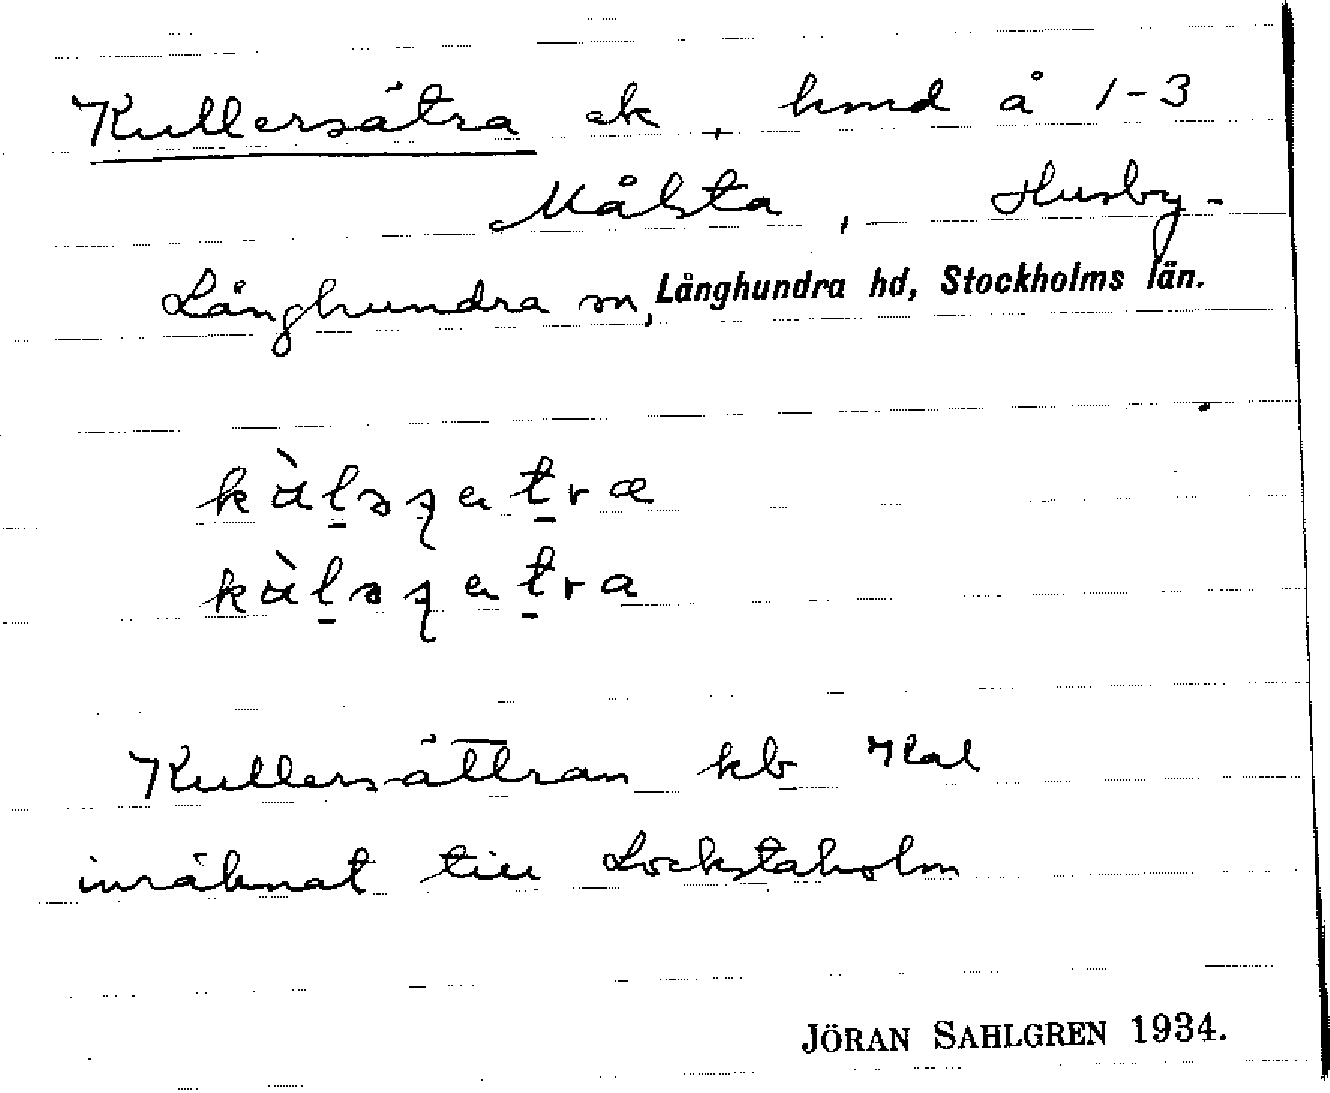 Kullersätra ek, hmd å 1-3
Målsta, Husby-
Långhundra sn, Långhundra hd, Stockholms län.
Kullersättran kb Kal
inräknat till Lockstaholm
JÖRAN SAHLGREN 1934.